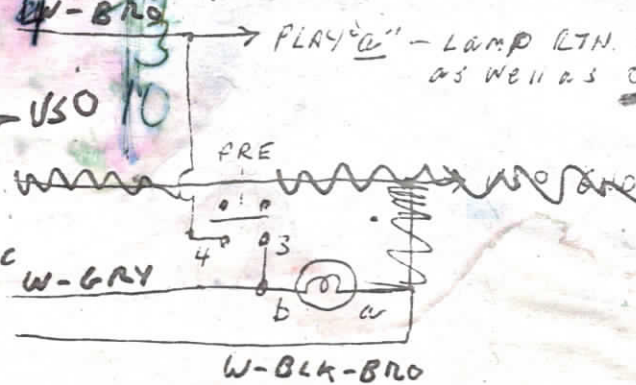 W-BRO
PLAY "a" - LAMP RTN.
as well as
3
VSO 10
PRE
4 3
C
W-GRY
b a
W-BLK-BRO